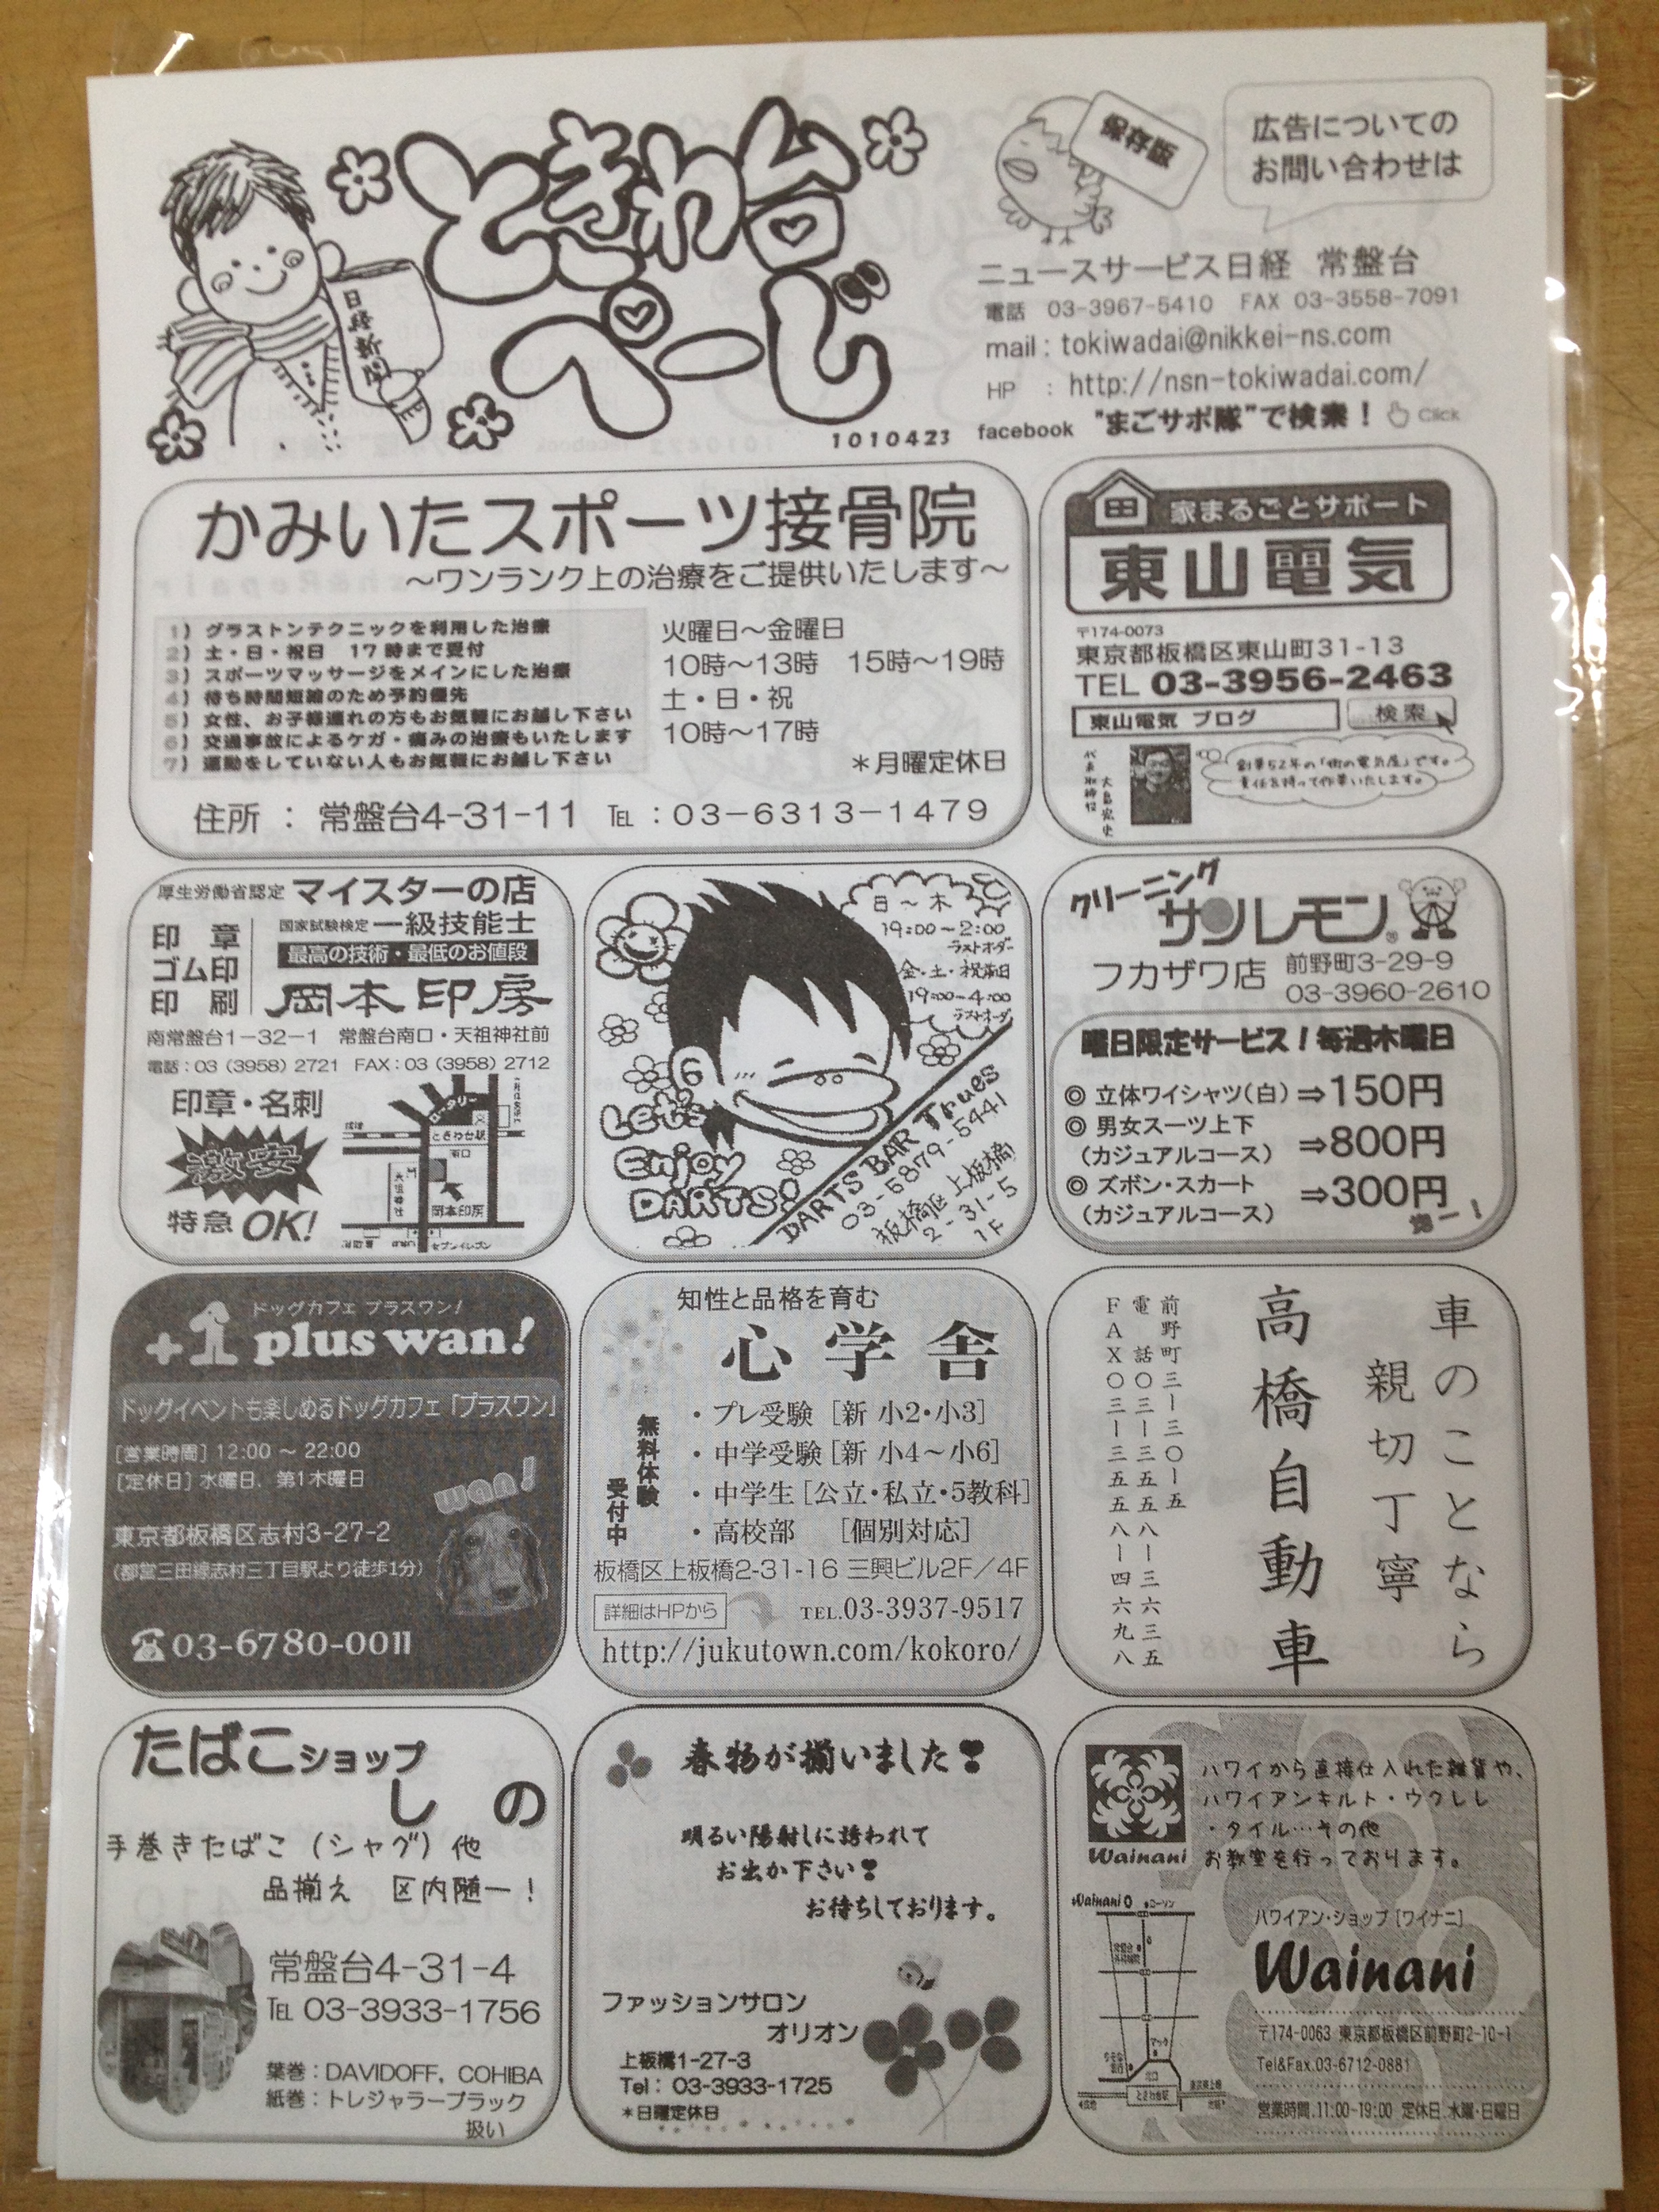 ときわ台
ぺーじ
日経新聞
1010423
保存版
広告についての
お問い合わせは
ニュースサービス日経 常盤台
電話 03-3967-5410 FAX 03-3558-7091
mail : tokiwadai@nikkei-ns.com
HP : http://nsn-tokiwadai.com/
facebook "まごサポ隊"で検索! Click
かみいたスポーツ接骨院
~ワンランク上の治療をご提供いたします~
1) グラストンテクニックを利用した治療
2) 土・日・祝日 17時まで受付
3) スポーツマッサージをメインにした治療
4) 待ち時間短縮のため予約優先
5) 女性、お子様連れの方もお気軽にお越し下さい
6) 交通事故によるケガ・痛みの治療もいたします
7) 運動をしていない人もお気軽にお越し下さい
火曜日~金曜日
10時~13時 15時~19時
土・日・祝
10時~17時
*月曜定休日
住所 : 常盤台4-31-11 TEL : 03-6313-1479
家まるごとサポート
東山電気
〒174-0073
東京都板橋区東山町31-13
TEL 03-3956-2463
東山電気 ブログ 検索
創業52年の「街の電気屋」です。
責任を持って作業いたします。
代表取締役
厚生労働省認定 マイスターの店
印章
ゴム印
印刷
国家試験検定 一級技能士
最高の技術・最低のお値段
岡本印房
南常盤台1-32-1 常盤台南口・天祖神社前
電話:03 (3958) 2721 FAX:03 (3958) 2712
印章・名刺
激安
特急 OK!
ロータリー
ときわ台駅
南口
天祖神社
岡本印房
セブンイレブン
日~木
19:00~2:00
ラストオーダー
金・土・祝前日
19:00-4:00
ラストオーダー
Let's
Enjoy
DARTS!
DARTS BAR Trues
03-5879-5441
板橋区上板橋
2-31-5
1F
クリーニング
サンレモン
フカザワ店 前野町3-29-9
03-3960-2610
曜日限定サービス!毎週木曜日
◎ 立体ワイシャツ(白) ⇒150円
◎ 男女スーツ上下
(カジュアルコース) ⇒800円
◎ ズボン・スカート
(カジュアルコース) ⇒300円
ドッグカフェ プラスワン!
+1 plus wan!
ドッグイベントも楽しめるドッグカフェ「プラスワン」
[営業時間] 12:00 ~ 22:00
[定休日] 水曜日、第1木曜日
wan!
東京都板橋区志村3-27-2
(都営三田線志村三丁目駅より徒歩1分)
☎03-6780-0011
知性と品格を育む
心学舎
無料体験
受付中
・プレ受験 [新 小2・小3]
・中学受験 [新 小4~小6]
・中学生 [公立・私立・5教科]
・高校部 [個別対応]
板橋区上板橋2-31-16 三興ビル2F/4F
詳細はHPから TEL.03-3937-9517
http://jukutown.com/kokoro/
車のことなら
親切丁寧
高橋自動車
前野町三ー三〇ー五
電話〇三ー三五五八ー三六三五
FAX〇三ー三五五八ー四六九八
たばこショップ
しの
手巻きたばこ(シャグ)他
品揃え 区内随一!
常盤台4-31-4
TEL 03-3933-1756
葉巻:DAVIDOFF, COHIBA
紙巻:トレジャラーブラック
扱い
春物が揃いました❣
明るい陽射しに誘われて
お出か下さい❣
お待ちしております。
ファッションサロン
オリオン
上板橋1-27-3
Tel: 03-3933-1725
*日曜定休日
Wainani
ハワイから直接仕入れた雑貨や、
ハワイアンキルト・ウクレレ
・タイル…その他
お教室を行っております。
Wainani
ローソン
マック
北口
ときわ台駅
ハワイアン・ショップ [ワイナニ]
Wainani
〒174-0063 東京都板橋区前野町2-10-1
Tel&Fax.03-6712-0881
営業時間.11:00-19:00 定休日.水曜・日曜日